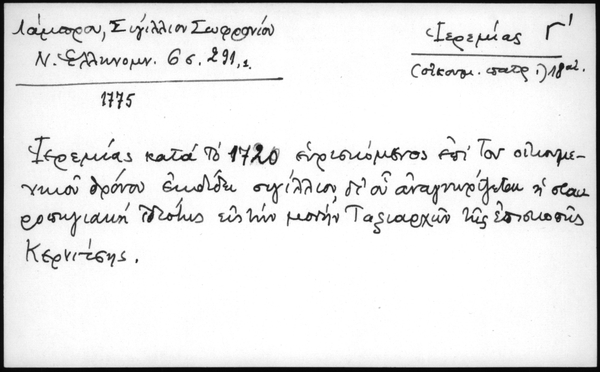 Λάμπρου, Σιγίλλιον Σωφρονίου
Ν. Ελληνομν. 6 σ. 291,
1775
Ἱερεμίας Γ'
(οἰκουμ. πατρ.) 18
Ἱερεμίας κατά τό 1720 εὑρισκόμενος ἐπί τοῦ οἰκουμε-
νικοῦ θρόνου ἐκδίδει σιγίλλιον δι' οὗ ἀναγνωρίζεται ἡ σταυ-
ροπηγιακή ἰδιότης εἰς τήν μονήν Ταξιαρχῶν τῆς ἐπισκοπῆς
Κερνίτσης.